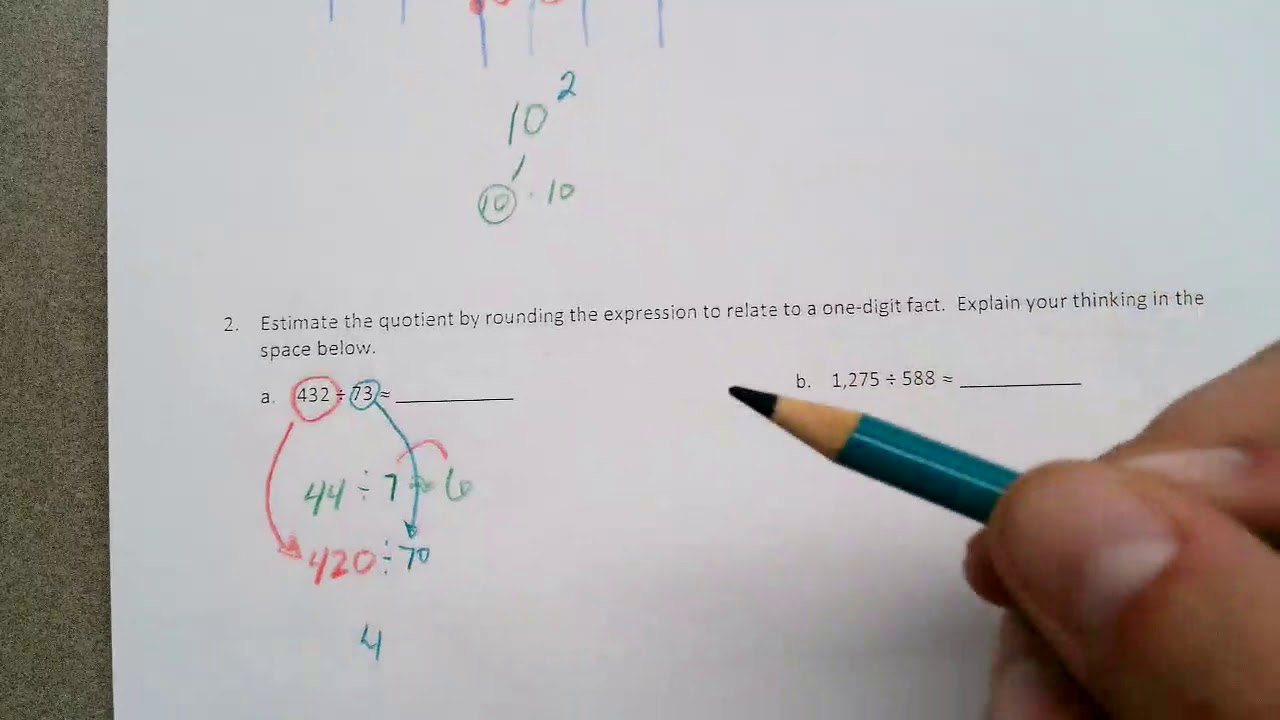 10²
10 · 10
2. Estimate the quotient by rounding the expression to relate to a one-digit fact. Explain your thinking in the
space below.
a. 432 ÷ 73 ≈ __________
b. 1,275 ÷ 588 ≈ __________
44 ÷ 7 6
420 ÷ 70
4